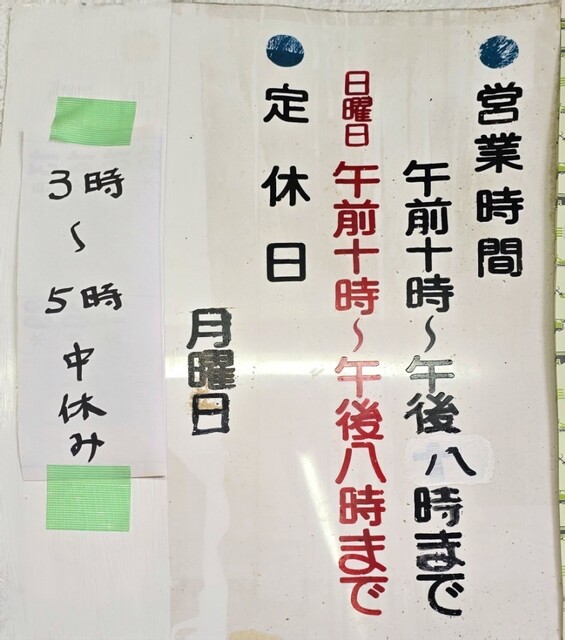 ●営業時間
午前十時〜午後八時まで
日曜日午前十時〜午後八時まで
●定休日
月曜日
3時〜5時中休み